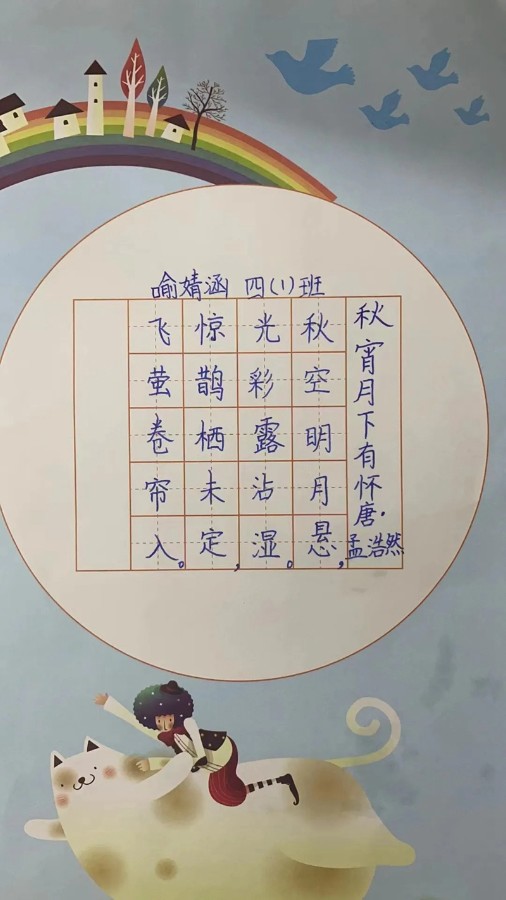 喻婧涵 四(1)班
秋宵月下有怀唐·孟浩然
秋空明月悬,
光彩露沾湿。
惊鹊栖未定,
飞萤卷帘入。